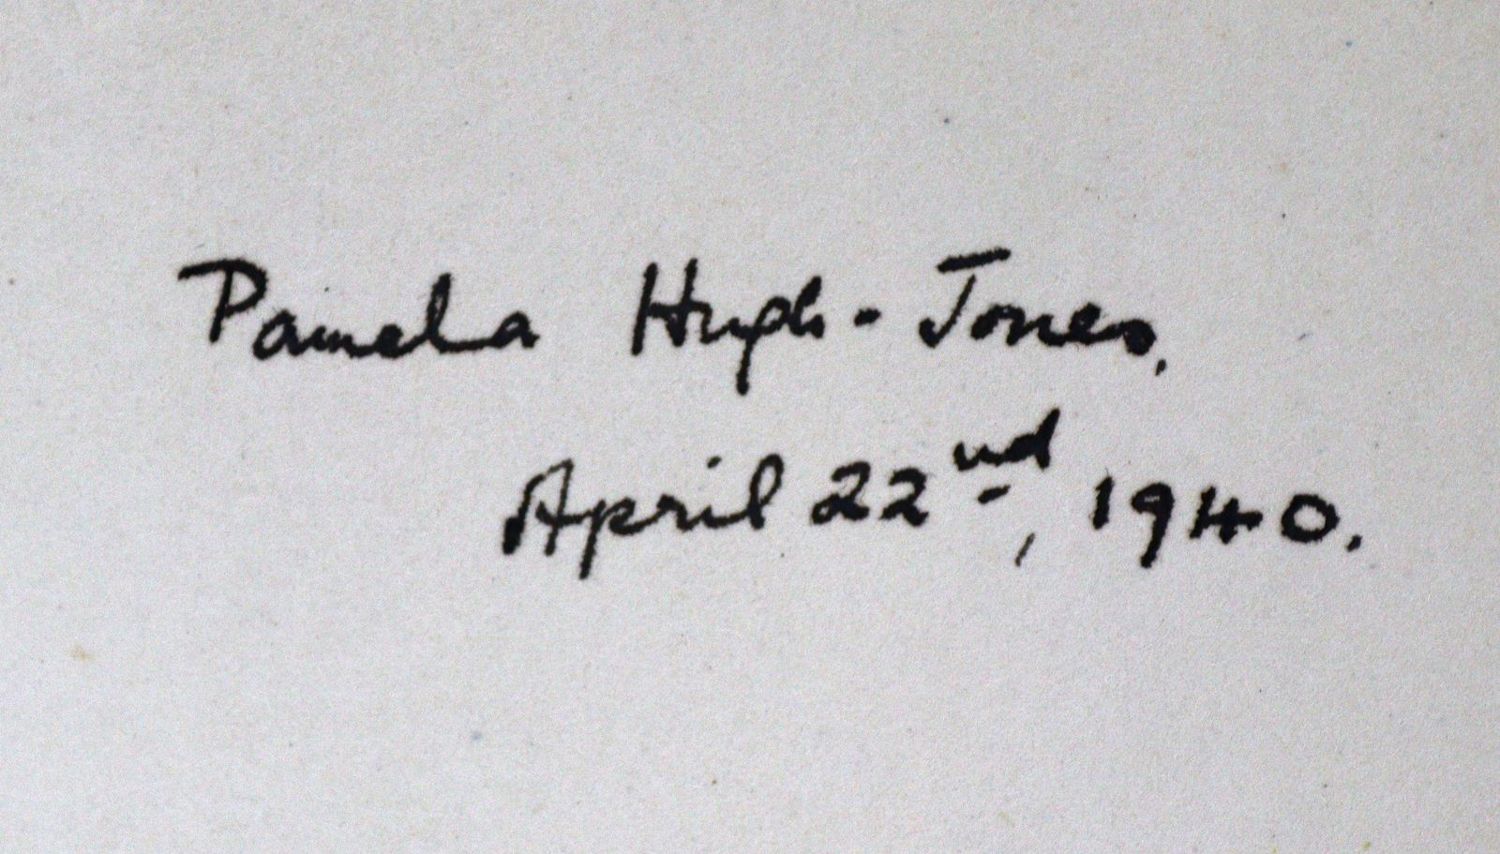 Pamela Hugh-Jones.
April 22nd, 1940.